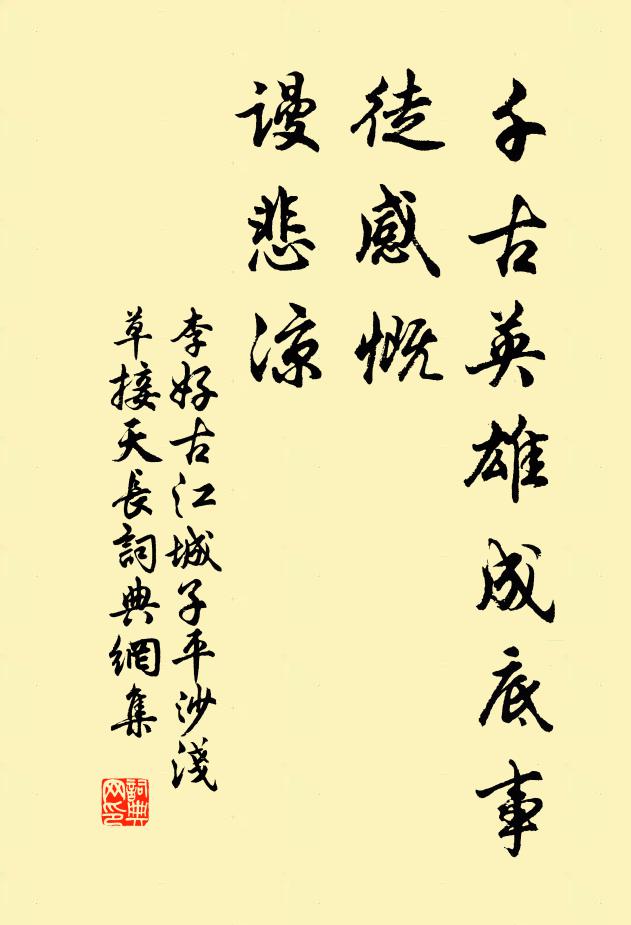 千古英雄成底事
徒感慨
谩悲凉
李好古江城子平沙淺
草接天長詞典網集
詞典
网印